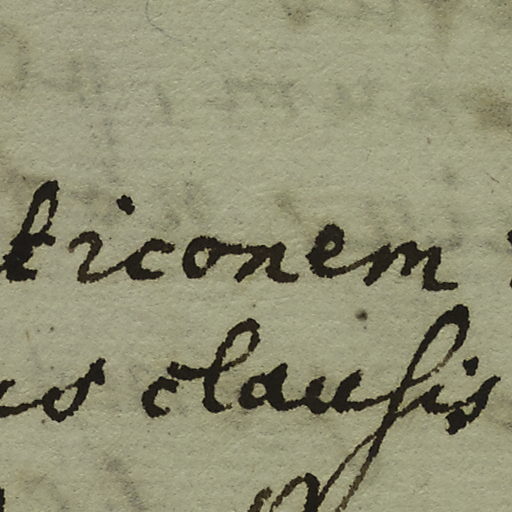 ticonem
us clausis